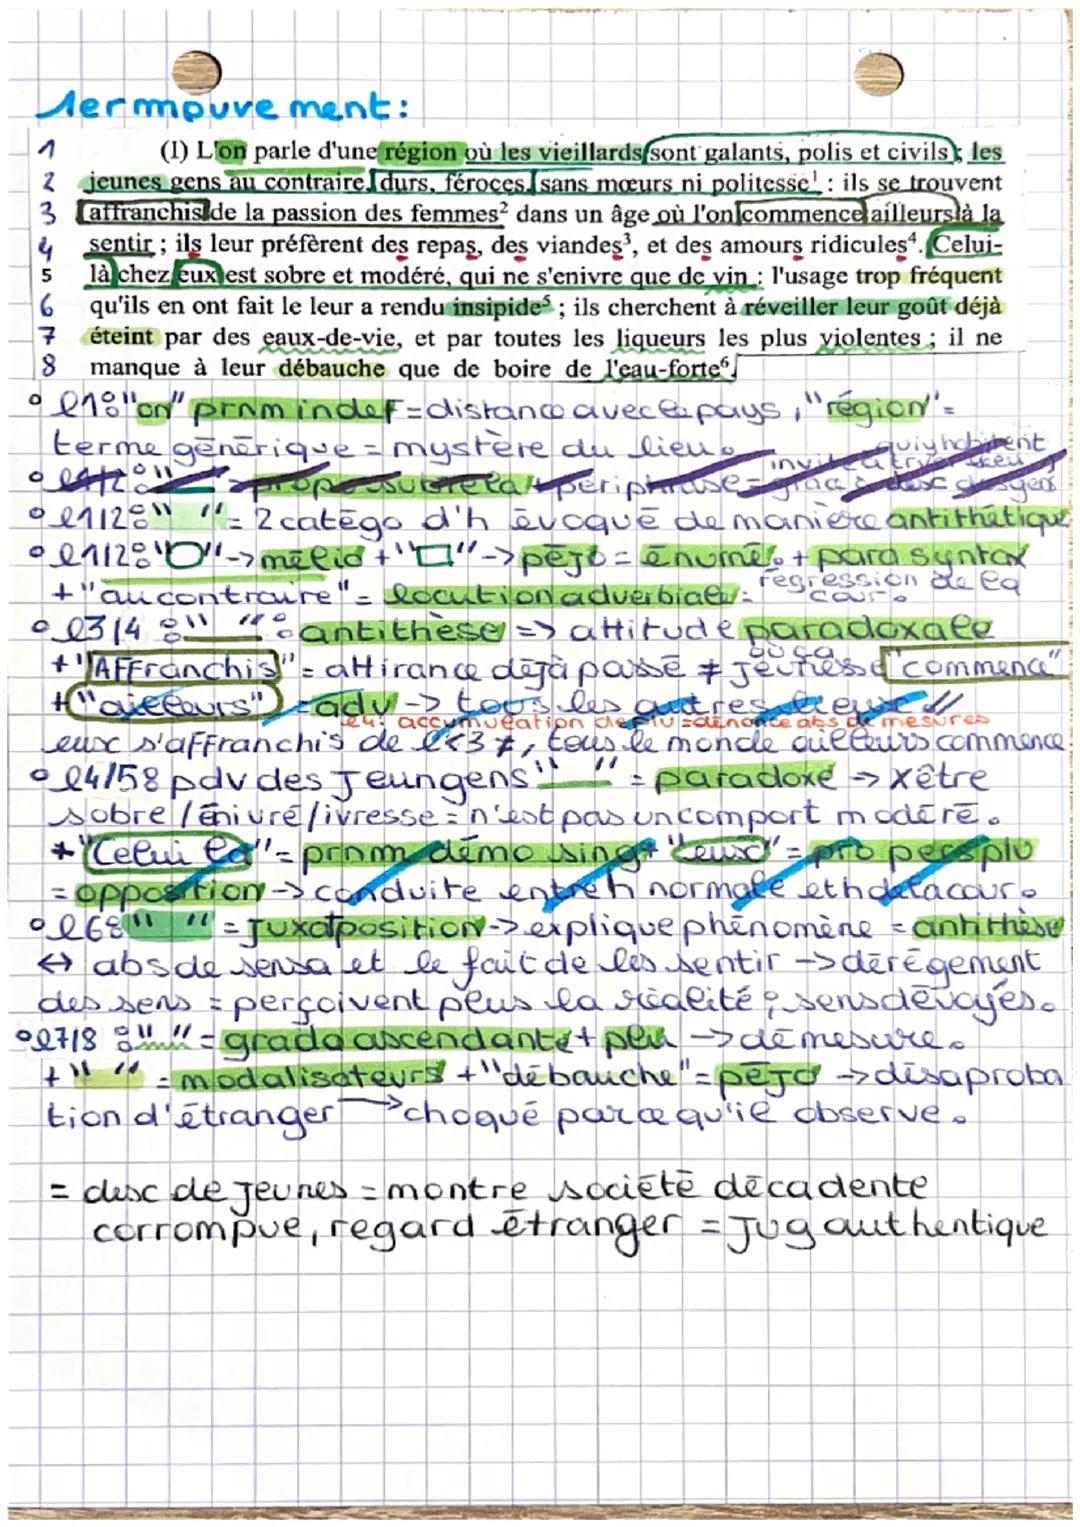 1er mouvement :
1 (1) L'on parle d'une région où les vieillards sont galants, polis et civils ; les
2 jeunes gens au contraire, durs, féroces, sans mœurs ni politesse¹ : ils se trouvent
3 affranchis de la passion des femmes² dans un âge où l'on commence ailleurs à la
4 sentir ; ils leur préfèrent des repas, des viandes³, et des amours ridicules⁴. Celui-
5 là chez eux est sobre et modéré, qui ne s'enivre que de vin : l'usage trop fréquent
6 qu'ils en ont fait le leur a rendu insipide⁵ ; ils cherchent à réveiller leur goût déjà
7 éteint par des eaux-de-vie, et par toutes les liqueurs les plus violentes ; il ne
8 manque à leur débauche que de boire de l'eau-forte⁶.
l1: "on" prnm indef = distance avec le pays, "région" =
terme générique = mystère du lieu.
qui y habitent
l1/2: " " = périphrase =
l1/2: " " = 2 catégo d'h évoqué de manière antithétique
l1/2: "O" -> mélio + "□" -> péjo = énumé. + para syntax
+ "au contraire" = locution adverbiale = régression de la cour.
l3/4 : " " : antithèse => attitude paradoxale
+ "AFFranchis" = attirance déjà passé ≠ jeunesse où ça "commence"
+ "ailleurs" = adv -> tous les autres lieux //
l4: accumulation de plu = dénonce abs de mesures
eux s'affranchis de l<3 ≠, tous le monde ailleurs commence
l4/5: pdv des Jeungens " " = paradoxe -> x être
sobre / énivré / ivresse = n'est pas un comport modéré.
+ "Celui la" = prnm démo sing + "eux" = pro pers plu
= opposition -> conduite entre h normale et h de la cour.
l6: " " = Juxtaposition -> explique phénomène = antithèse
<-> abs de sensa et le fait de les sentir -> dérégement
des sens = perçoivent plus la réalité, sens dévoyés.
l7/8 : " " = grada ascendante + plu -> démesure.
+ " " = modalisateurs + "débauche" = péjo -> désaproba
tion d'étranger -> choqué par ce qu'il observe.
= desc de jeunes = montre société décadente
corrompue, regard étranger = Jug authentique